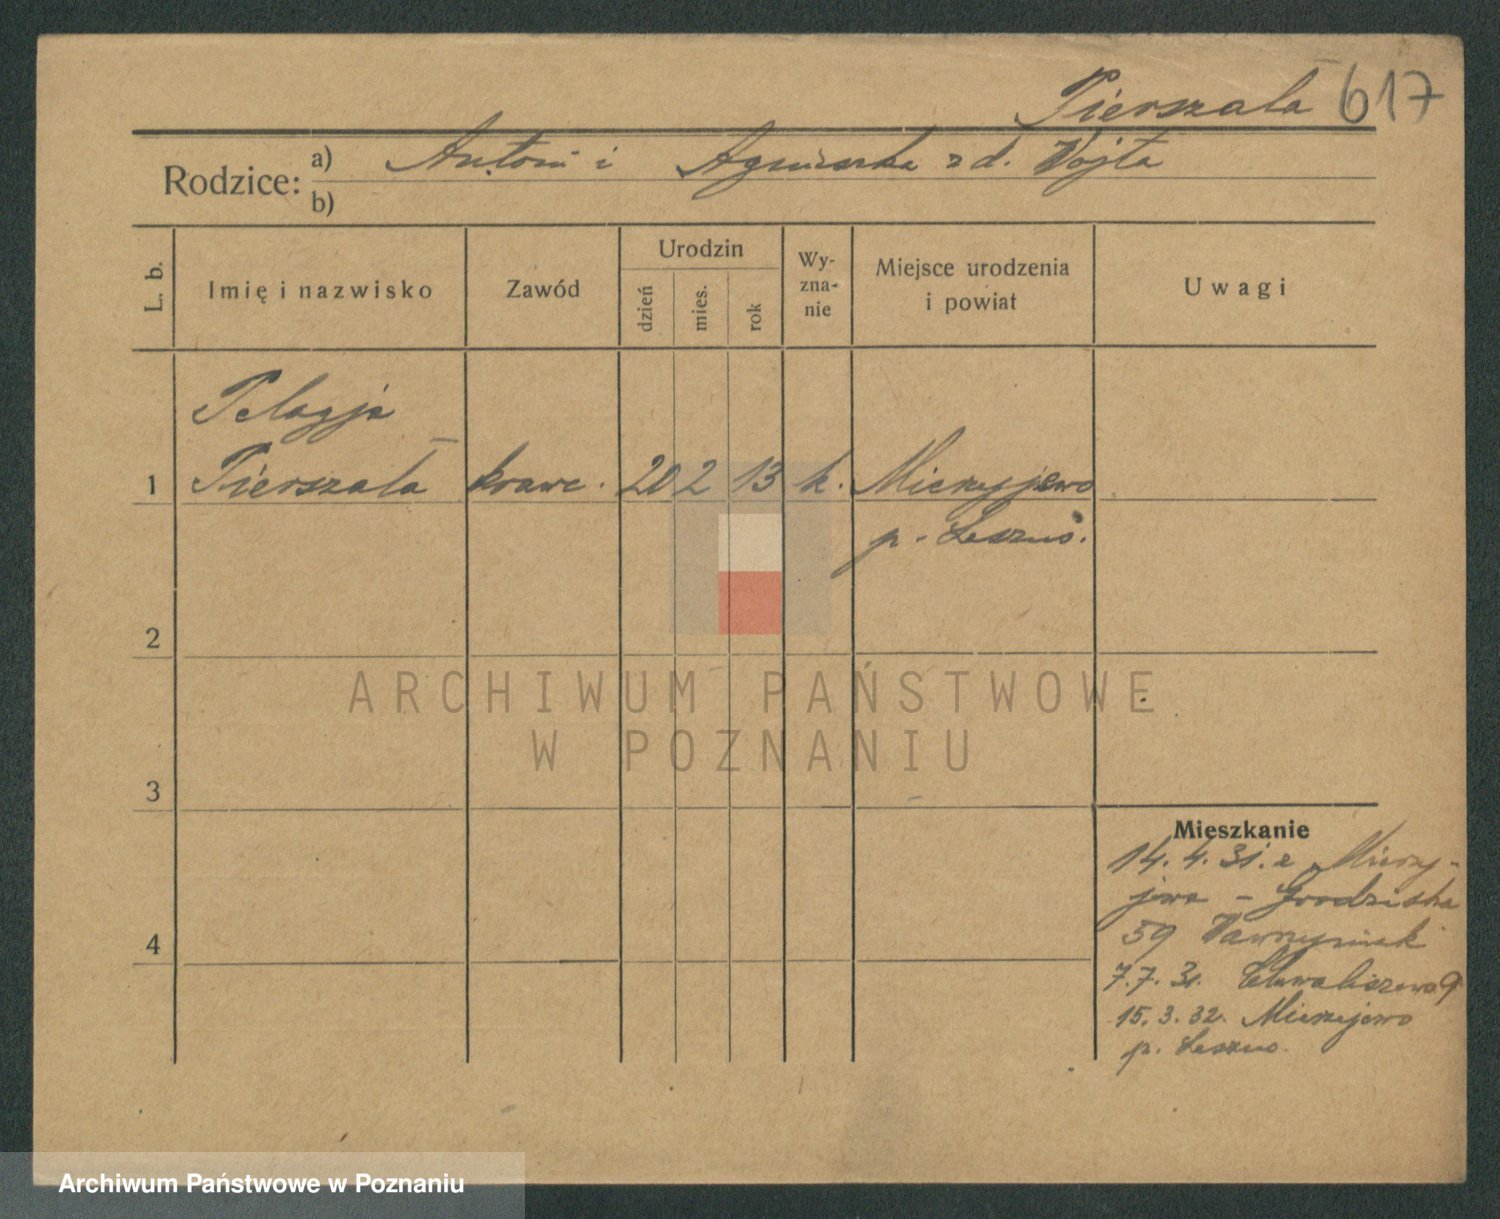 Pierszala 617
Rodzice:
a) Antoni i Agnieszka z d. Wojta
b)
L. b.
Imię i nazwisko
Zawód
Urodzin
dzień
mies.
rok
Wy-
zna-
nie
Miejsce urodzenia
i powiat
Uwagi
Pelagja
1 Pierszala krawc. 20 2 13 k. Mierzejewo
p. Leszno.
2
3
4
ARCHIWUM PAŃSTWOWE
W POZNANIU
Mieszkanie
14. 4. 31. z Mierzy-
jewa - Grodziska
59 Wawrzyniak
7. 7. 31. Chwaliszewo 9
15. 3. 32. Mierzejewo
p. Leszno.
Archiwum Państwowe w Poznaniu